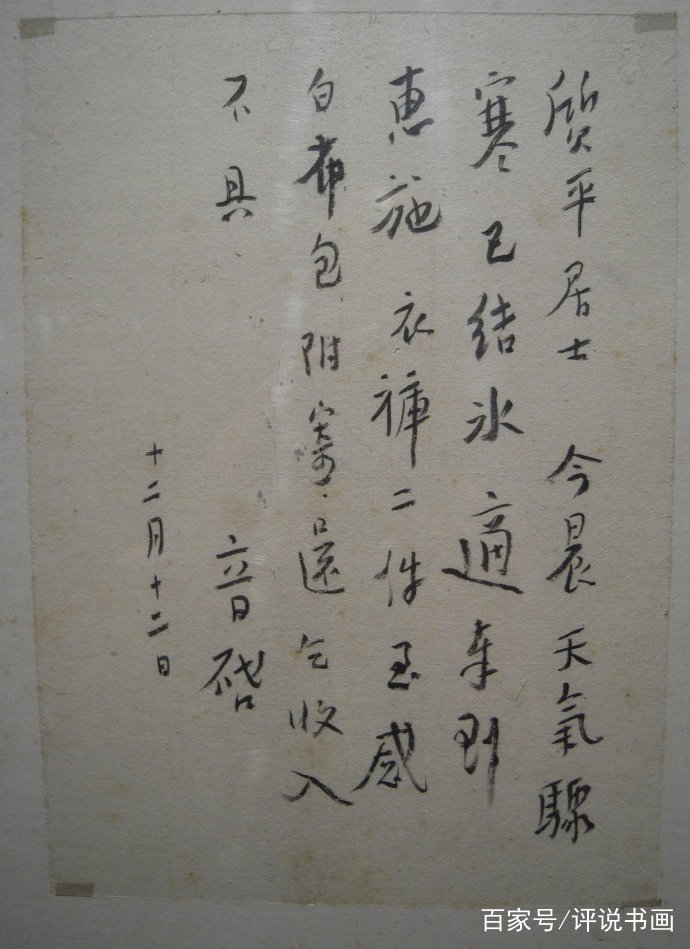 質平居士 今晨天氣驟
寒已結冰適奉到
惠施 衣褲二件至感
白布包附寄還乞收入
不具 音啓
十二月十二日
百家号/评说书画